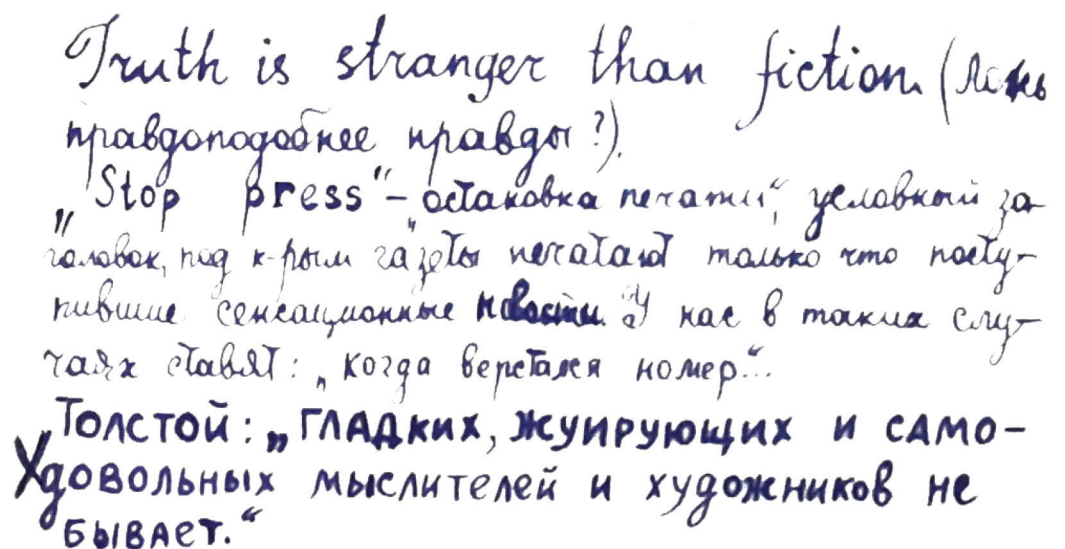 Truth is stranger than fiction. (Ложь
правдоподобнее правды?).
„Stop press“ – „остановка печати“, условный за-
головок, под к-рым газеты печатают только что посту-
пившие сенсационные новости. У нас в таких слу-
чаях ставят: „когда верстался номер...“
Толстой: „гладких, жуирующих и само-
довольных мыслителей и художников не
бывает.“